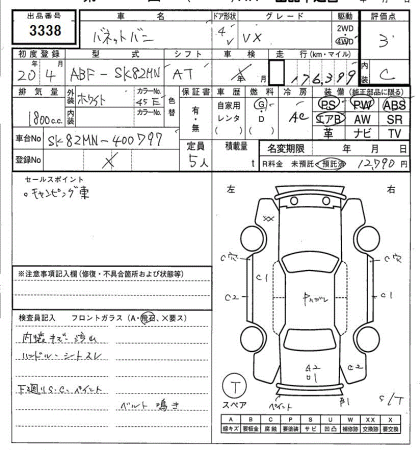 出品番号 車名 ドア形状 グレード 駆動 評価点
3338 バネットバン 4 V VX 2WD 4WD 3
初度登録 型式 シフト 車検 走行(km・マイル) 内装
20年4月 ABF-SK82MN AT X年 月 176,399 C
排気量 外装 カラーNo. 色替 保証書 車歴 燃料 冷房 装備(純正部品に限る)
1800cc ホワイト 45E 有・無 自家用 レンタ ( ) G・D ( ) AC PS PW ABS
内装 カラーNo. エアB AW SR
革 ナビ TV
車台No SK82MN-400797 定員 5人 積載量 t 名変期限 年 月 日
登録No X R料金 未預託・預託済 12,790円
セールスポイント
。キャンピング車
※注意事項記入欄(修復・不具合箇所および状態等)
検査員記入 フロントガラス(A・飛石、×要ス)
内装キズ・汚れ
ハンドル・シートスレ
下廻りS.C.ペイント
ベルト鳴き
左 右
XX
C穴 C穴
C1
C2 C1
A2
D1 C2
T
スペア ペイント S/T
A B C P S U W XX X
線キズ 要板金 腐蝕 要塗装 サビ 凹凸 補修跡 交換跡 要交換